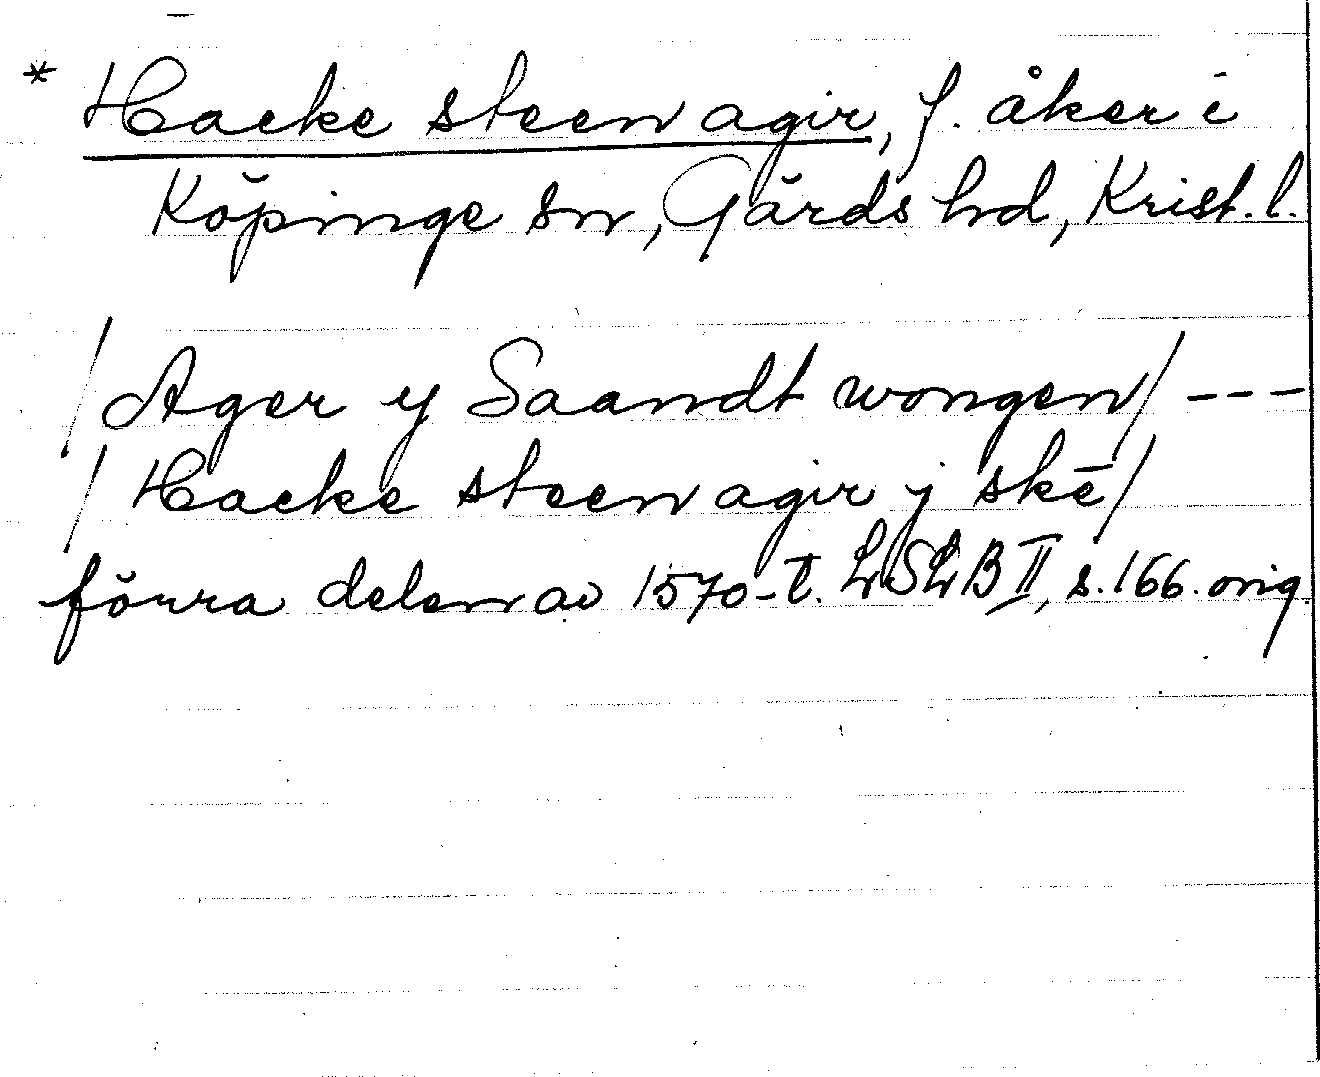 * Hacke steen agir, f. åker i
Köpinge sn, Gärds hd, Krist. l.
/Ager y Saandt wongen/ ---
/Hacke steen agir j skē/
förra delen av 1570-t. LSLB II, s. 166. orig.